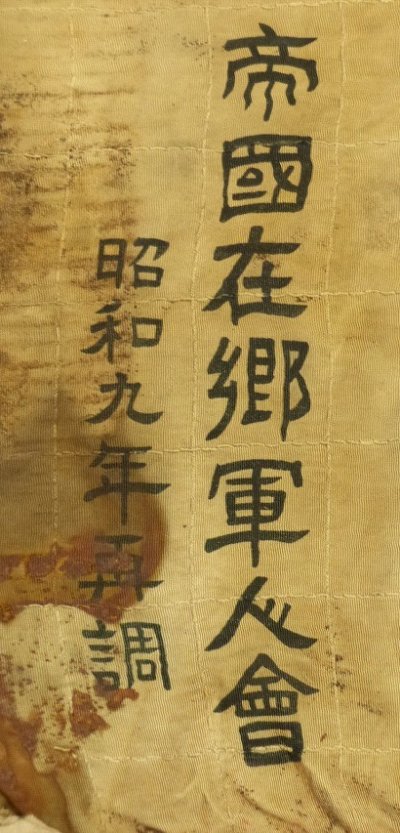 帝國在郷軍人會
昭和九年再調